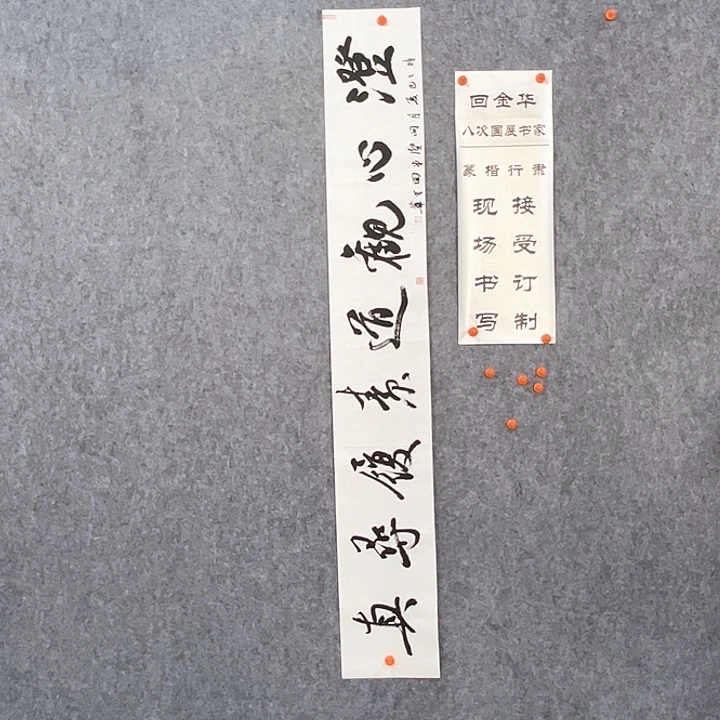 澄心觀道素履尋真
回金华
八次国展书家
篆楷行
现场书写
接受订制